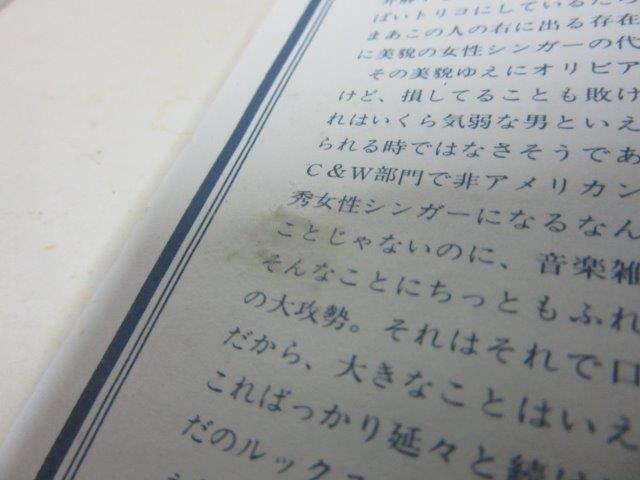 ばいトリコにしているたち
まあこの人の右に出る存在
に美貌の女性シンガーの代
その美貌ゆえにオリビア
けど、損してることも敗け
れはいくら気弱な男といえ
られる時ではなさそうであ
C&W部門で非アメリカン
秀女性シンガーになるなん
ことじゃないのに、音楽雑
そんなことにちっともふれ
の大攻勢。それはそれで口
だから、大きなことはいえ
こればっかり延々と続け
だのルックス